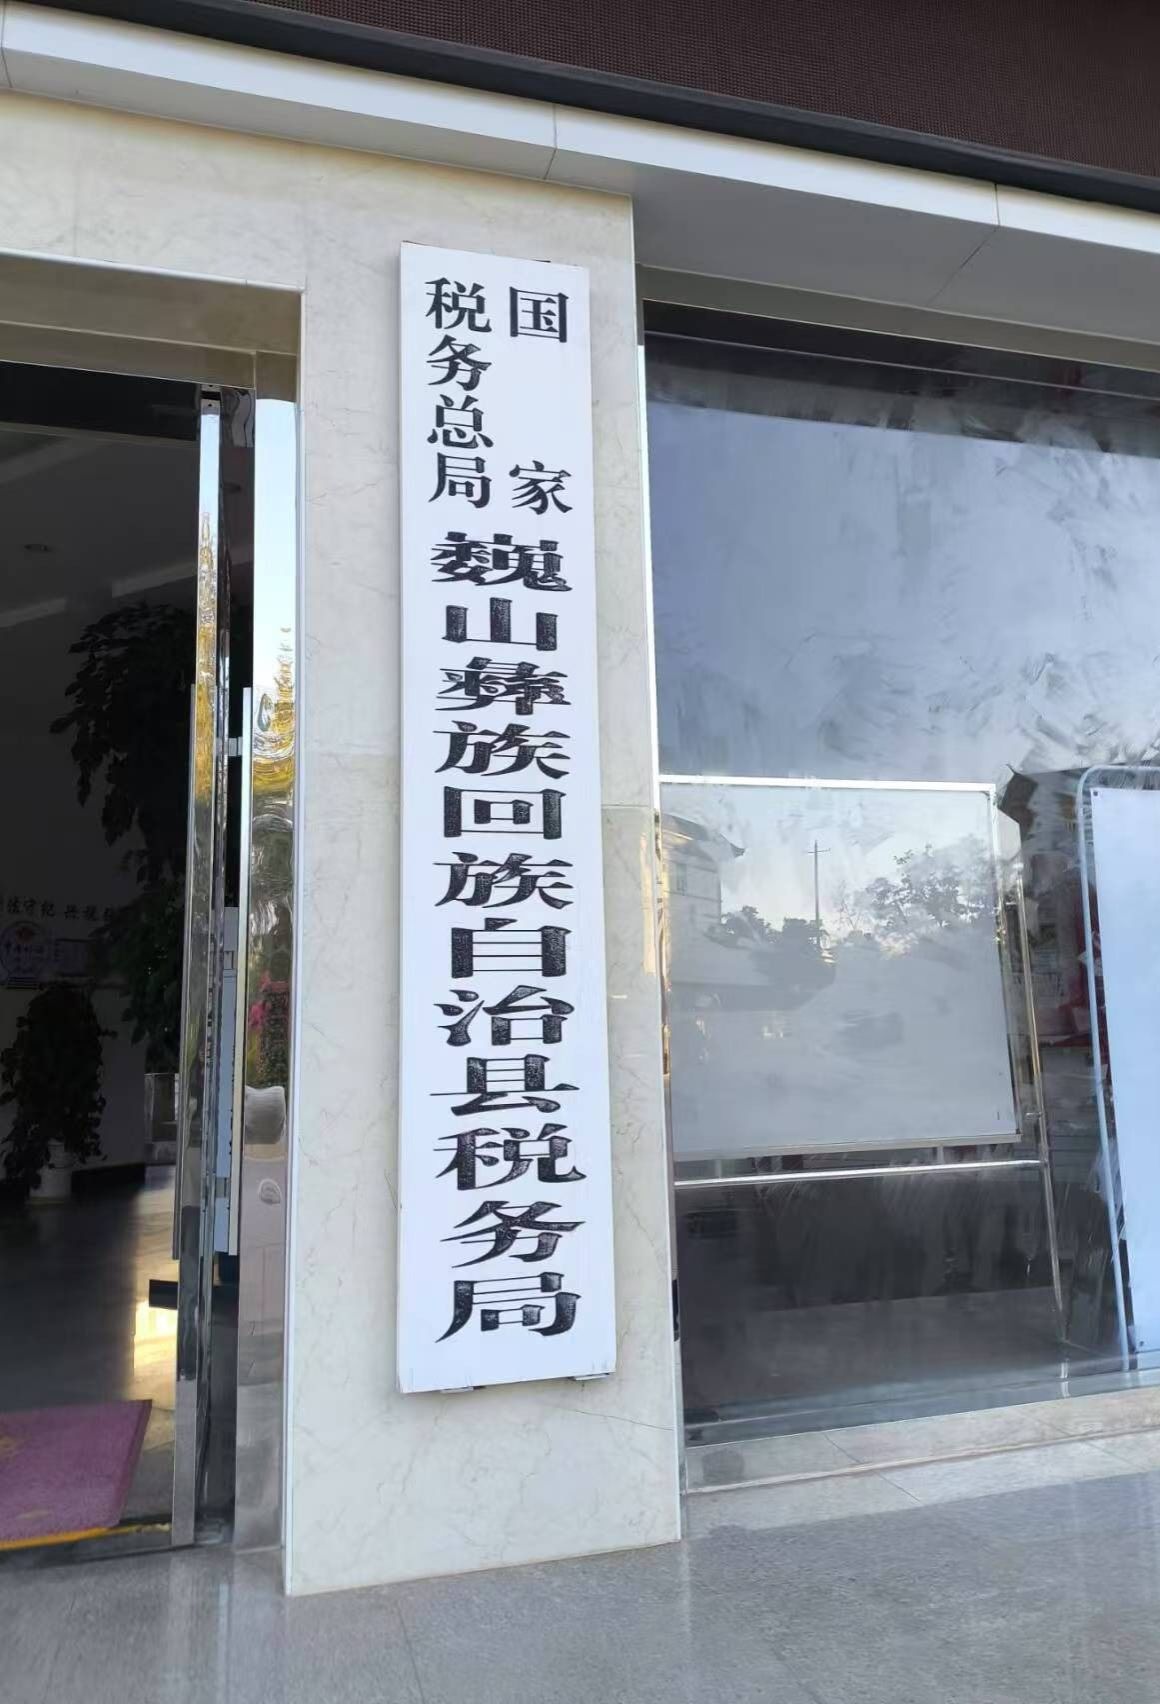 国家
税务总局
巍山彝族回族自治县税务局